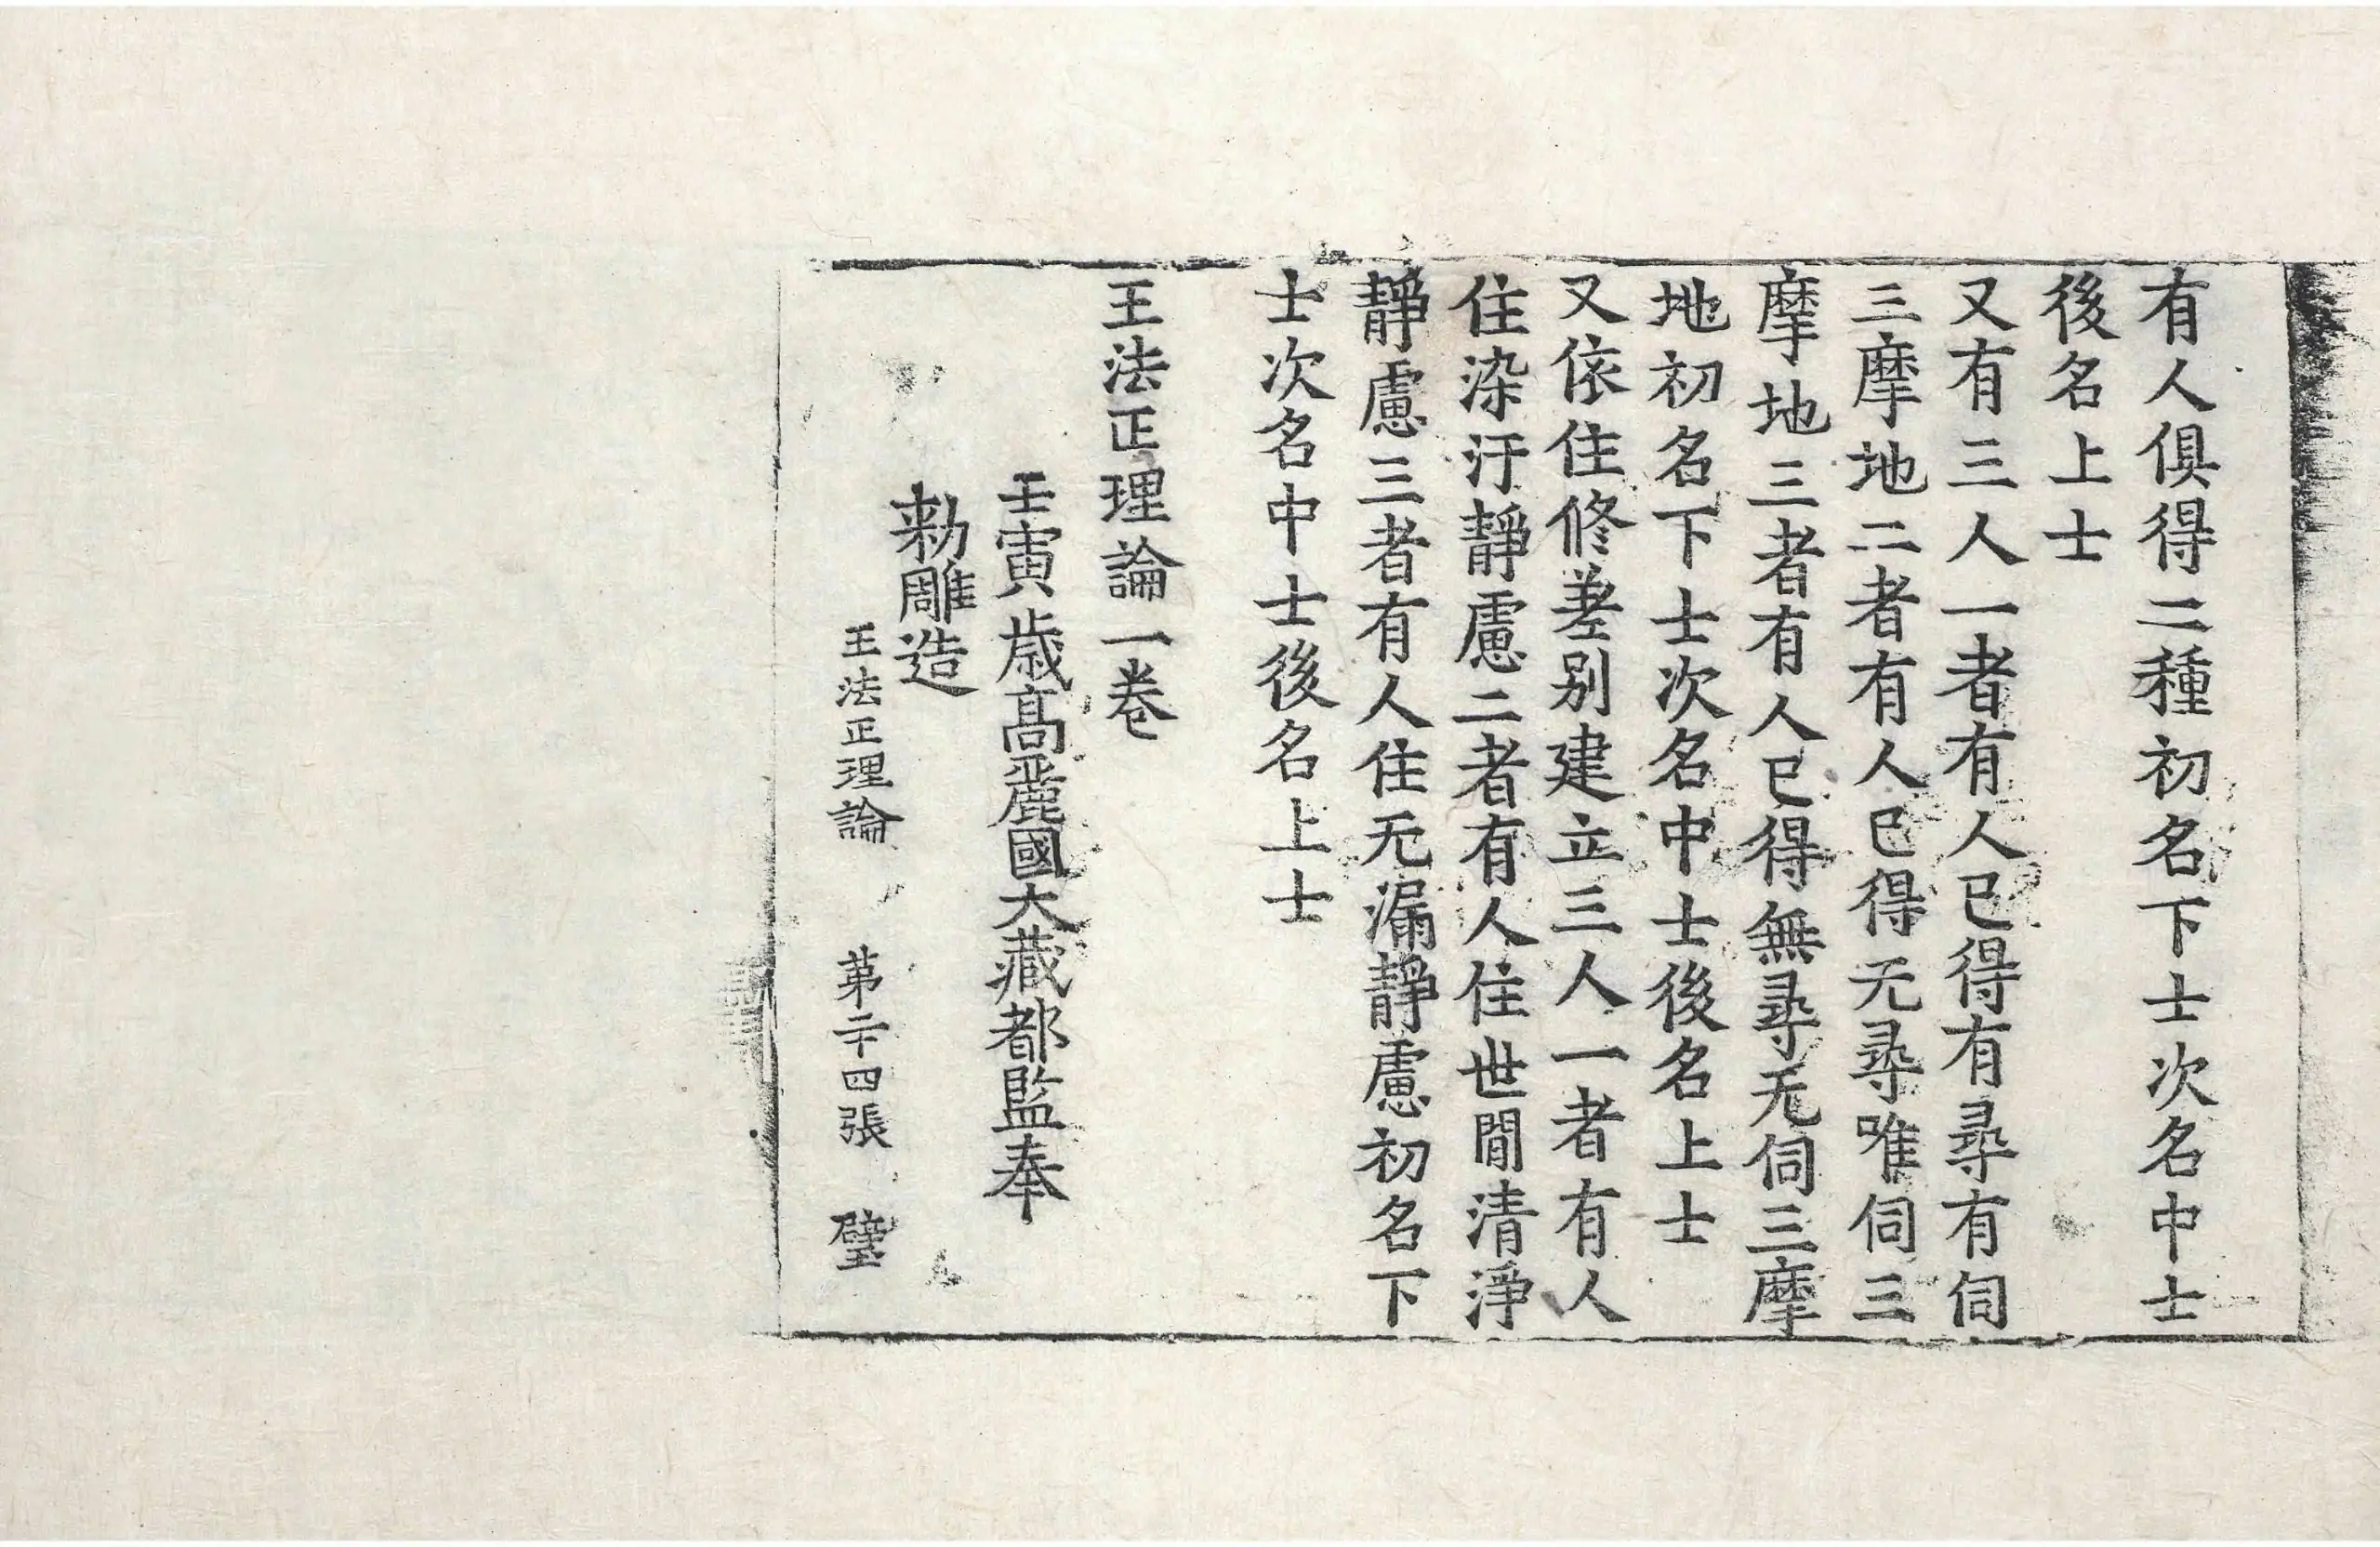 有人俱得二種初名下士次名中士
後名上士
又有三人一者有人已得有尋有伺
三摩地二者有人已得无尋唯伺三
摩地三者有人已得無尋无伺三摩
地初名下士次名中士後名上士
又依住修差别建立三人一者有人
住染汙靜慮二者有人住世間清淨
靜慮三者有人住无漏靜慮初名下
士次名中士後名上士
王法正理論一卷
壬寅歳髙麗國大藏都監奉
勅雕造
王法正理論 第二十四張 璧